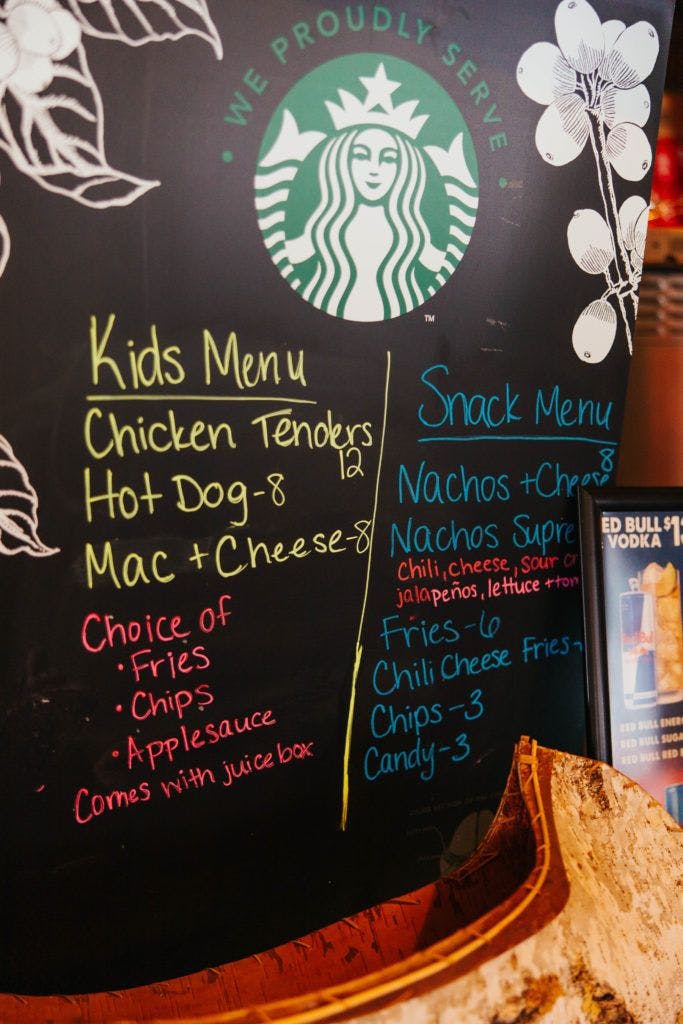 WE PROUDLY SERVE
TM
Kids Menu
Chicken Tenders
12
Hot Dog-8
Mac + Cheese-8
Choice of
• Fries
• Chips
• Applesauce
Comes with juice box
Snack Menu
8
Nachos + Cheese
Nachos Supre
Chili, cheese, sour
jalapeños, lettuce + tom
Fries-6
Chili Cheese Fries-
Chips-3
Candy-3
ED BULL $1
VODKA
RED BULL ENER
RED BULL SUGA
RED BULL RED